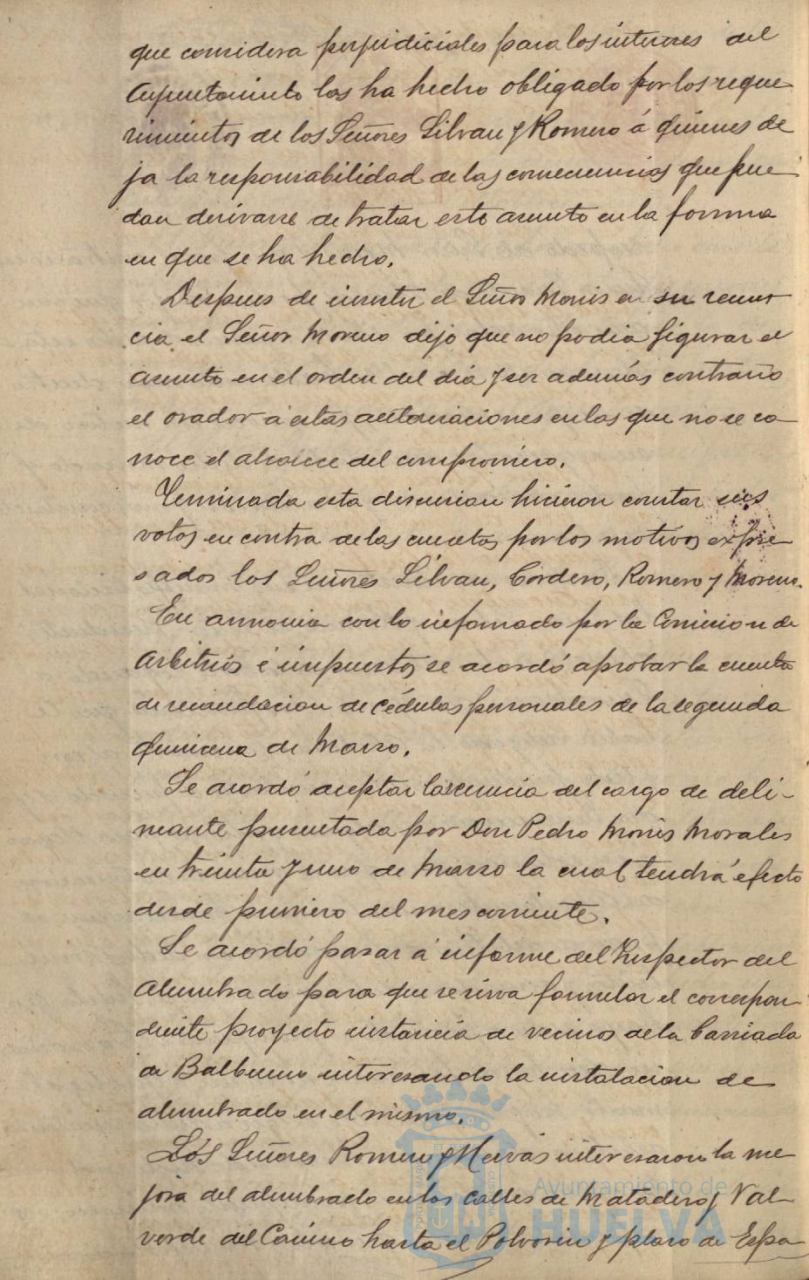 que considera perjudiciales para los interes del
Ayuntamiento las ha hecho obligado por los reque
rimientos de los Señores Silvan y Romero á quienes de
ja la responsabilidad de las consecuencias que pue
dan derivarse de tratar este asunto en la forma
en que se ha hecho.
Despues de insistir el Señor Monis en su renun
cia el Señor Moreno dijo que no podia figurar el
asunto en el orden del dia y ser además contrario
el orador á estas autorizaciones en las que no se co-
noce el alcance del compromiso.
Terminada esta discusion hicieron constar sus
votos en contra de las cuentas por los motivos expre
sados los Señores Silvan, Cordero, Romero y Moreno.
En armonia con lo informado por la Comision de
Arbitrios é impuestos se acordó aprobar la cuenta
de recaudacion de cédulas personales de la segunda
quincena de Marzo.
Se acordó aceptar la renuncia del cargo de deli-
neante presentada por Don Pedro Monis Morales
en treinta y uno de Marzo la cual tendrá efecto
desde primero del mes corriente.
Se acordó pasar á informe del Inspector del
Alumbrado para que se sirva formular el correspon-
diente proyecto instancia de vecinos de la barriada
de Balbueno interesando la instalacion de
alumbrado en el mismo.
Los Señores Romero y Hervás interesaron la me
jora del alumbrado en las calles de Matadero y Val-
verde del Camino hasta el Polvorin y plaza de Espa
Ayuntamiento de
HUELVA